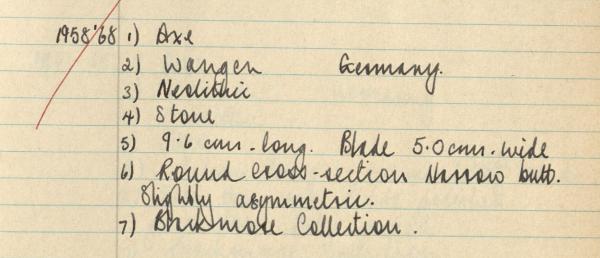 1958'68 1) Axe
2) Wangen Germany.
3) Neolithic
4) Stone
5) 9.6 cms. long. Blade 5.0 cms. wide
6) Round cross-section Narrow butt.
Slightly asymmetric.
7) Blackmore Collection.